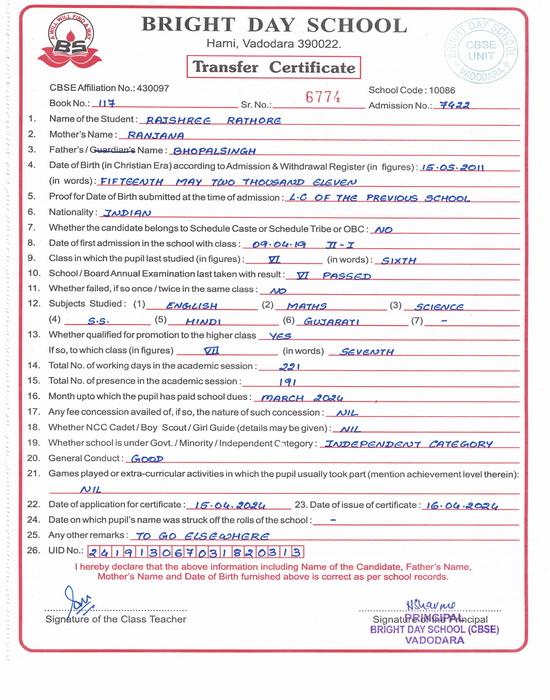 A WILL WILL FIND A WAY
BS
BRIGHT DAY SCHOOL
Harni, Vadodara 390022.
BRIGHT DAY SCHOOL
CBSE
UNIT
VADODARA
Transfer Certificate
CBSE Affiliation No.: 430097 School Code : 10086
Book No.: 117 Sr. No.: 6774 Admission No.: 7422
1. Name of the Student : RAJSHREE RATHORE
2. Mother's Name : RANJANA
3. Father's / Guardian's Name : BHOPALSINGH
4. Date of Birth (in Christian Era) according to Admission & Withdrawal Register (in figures) : 15.05.2011
(in words) : FIFTEENTH MAY TWO THOUSAND ELEVEN
5. Proof for Date of Birth submitted at the time of admission : L.C OF THE PREVIOUS SCHOOL
6. Nationality : INDIAN
7. Whether the candidate belongs to Schedule Caste or Schedule Tribe or OBC : NO
8. Date of first admission in the school with class : 09.04.19 II-I
9. Class in which the pupil last studied (in figures) : VI (in words) : SIXTH
10. School / Board Annual Examination last taken with result : VI PASSED
11. Whether failed, if so once / twice in the same class : NO
12. Subjects Studied : (1) ENGLISH (2) MATHS (3) SCIENCE
(4) S.S. (5) HINDI (6) GUJARATI (7) -
13. Whether qualified for promotion to the higher class YES
If so, to which class (in figures) VII (in words) SEVENTH
14. Total No. of working days in the academic session : 221
15. Total No. of presence in the academic session : 191
16. Month upto which the pupil has paid school dues : MARCH 2024
17. Any fee concession availed of, if so, the nature of such concession : NIL
18. Whether NCC Cadet / Boy Scout / Girl Guide (details may be given) : NIL
19. Whether school is under Govt. / Minority / Independent Category : INDEPENDENT CATEGORY
20. General Conduct : GOOD
21. Games played or extra-curricular activities in which the pupil usually took part (mention achievement level therein):
NIL
22. Date of application for certificate : 15.04.2024 23. Date of issue of certificate : 16.04.2024
24. Date on which pupil's name was struck off the rolls of the school : -
25. Any other remarks : TO GO ELSEWHERE
26. UID No.: 241913067031820313
I hereby declare that the above information including Name of the Candidate, Father's Name,
Mother's Name and Date of Birth furnished above is correct as per school records.
Signature of the Class Teacher Signature of the Principal
PRINCIPAL
BRIGHT DAY SCHOOL (CBSE)
VADODARA